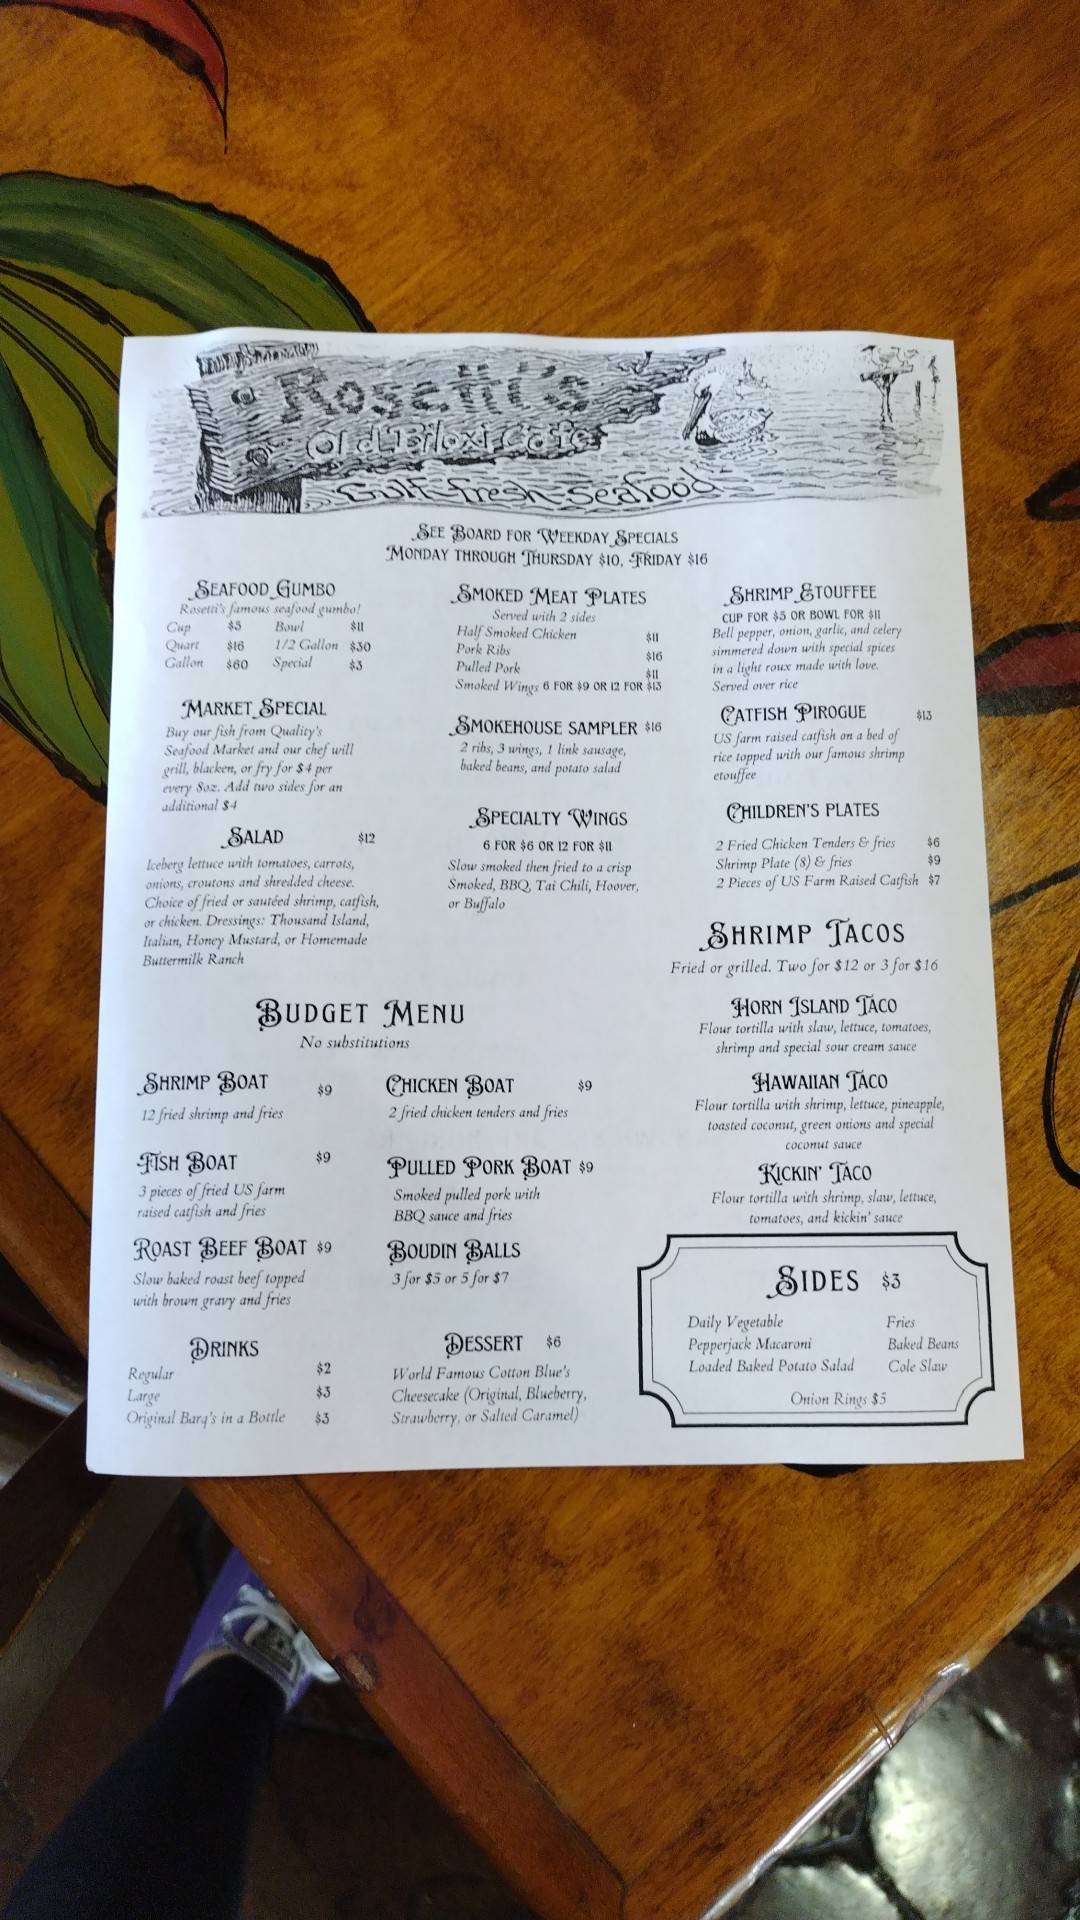 Rosetti's
Old Biloxi Cafe
Gulf-fresh-seafood
See Board for Weekday Specials
Monday through Thursday $10, Friday $16
Seafood Gumbo
Rosetti's famous seafood gumbo!
Cup $5 Bowl $11
Quart $16 1/2 Gallon $30
Gallon $60 Special $3
Market Special
Buy our fish from Quality's
Seafood Market and our chef will
grill, blacken, or fry for $4 per
every 8oz. Add two sides for an
additional $4
Salad $12
Iceberg lettuce with tomatoes, carrots,
onions, croutons and shredded cheese.
Choice of fried or sautéed shrimp, catfish,
or chicken. Dressings: Thousand Island,
Italian, Honey Mustard, or Homemade
Buttermilk Ranch
Smoked Meat Plates
Served with 2 sides
Half Smoked Chicken $11
Pork Ribs $16
Pulled Pork $11
Smoked Wings 6 for $9 or 12 for $13
Smokehouse Sampler $16
2 ribs, 3 wings, 1 link sausage,
baked beans, and potato salad
Specialty Wings
6 for $6 or 12 for $11
Slow smoked then fried to a crisp
Smoked, BBQ, Tai Chili, Hoover,
or Buffalo
Shrimp Etouffee
cup for $5 or bowl for $11
Bell pepper, onion, garlic, and celery
simmered down with special spices
in a light roux made with love.
Served over rice
Catfish Pirogue $13
US farm raised catfish on a bed of
rice topped with our famous shrimp
etouffee
Children's Plates
2 Fried Chicken Tenders & fries $6
Shrimp Plate (8) & fries $9
2 Pieces of US Farm Raised Catfish $7
Shrimp Tacos
Fried or grilled. Two for $12 or 3 for $16
Horn Island Taco
Flour tortilla with slaw, lettuce, tomatoes,
shrimp and special sour cream sauce
Hawaiian Taco
Flour tortilla with shrimp, lettuce, pineapple,
toasted coconut, green onions and special
coconut sauce
Kickin' Taco
Flour tortilla with shrimp, slaw, lettuce,
tomatoes, and kickin' sauce
Budget Menu
No substitutions
Shrimp Boat $9
12 fried shrimp and fries
Fish Boat $9
3 pieces of fried US farm
raised catfish and fries
Roast Beef Boat $9
Slow baked roast beef topped
with brown gravy and fries
Chicken Boat $9
2 fried chicken tenders and fries
Pulled Pork Boat $9
Smoked pulled pork with
BBQ sauce and fries
Boudin Balls
3 for $5 or 5 for $7
Drinks
Regular $2
Large $3
Original Barq's in a Bottle $3
Dessert $6
World Famous Cotton Blue's
Cheesecake (Original, Blueberry,
Strawberry, or Salted Caramel)
Sides $3
Daily Vegetable Fries
Pepperjack Macaroni Baked Beans
Loaded Baked Potato Salad Cole Slaw
Onion Rings $5